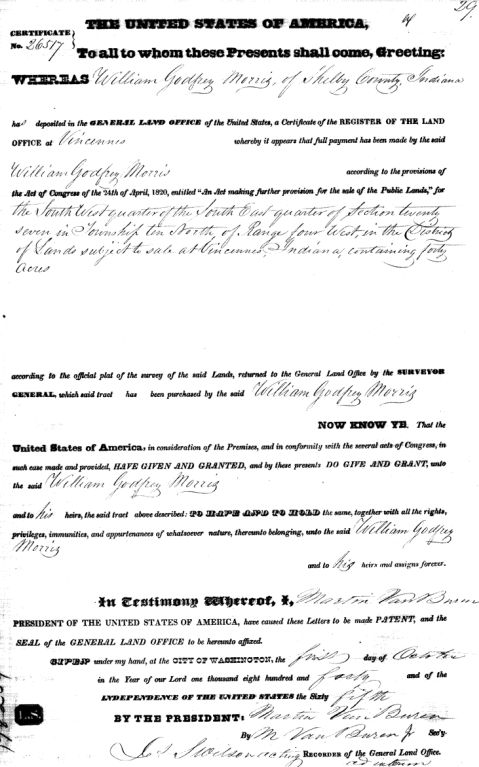 29.
THE UNITED STATES OF AMERICA,
CERTIFICATE
No. 26517
To all to whom these Presents shall come, Greeting:
WHEREAS William Godfrey Morris, of Shelby County, Indiana
has deposited in the GENERAL LAND OFFICE of the United States, a Certificate of the REGISTER OF THE LAND
OFFICE at Vincennes whereby it appears that full payment has been made by the said
William Godfrey Morris according to the provisions of
the Act of Congress of the 24th of April, 1820, entitled "An Act making further provision for the sale of the Public Lands," for
the South West quarter of the South East quarter of Section twenty
seven in Township ten North, of Range four West, in the District
of Lands subject to sale at Vincennes, Indiana, containing forty
acres
according to the official plat of the survey of the said Lands, returned to the General Land Office by the SURVEYOR
GENERAL, which said tract has been purchased by the said William Godfrey Morris
NOW KNOW YE, That the
United States of America, in consideration of the Premises, and in conformity with the several acts of Congress, in
such case made and provided, HAVE GIVEN AND GRANTED, and by these presents DO GIVE AND GRANT, unto
the said William Godfrey Morris
and to his heirs, the said tract above described: TO HAVE AND TO HOLD the same, together with all the rights,
privileges, immunities, and appurtenances of whatsoever nature, thereunto belonging, unto the said William Godfrey
Morris
and to his heirs and assigns forever.
In Testimony Whereof, I, Martin Van Buren
PRESIDENT OF THE UNITED STATES OF AMERICA, have caused these Letters to be made PATENT, and the
SEAL of the GENERAL LAND OFFICE to be hereunto affixed.
GIVEN under my hand, at the CITY OF WASHINGTON, the first day of October
in the Year of our Lord one thousand eight hundred and forty and of the
INDEPENDENCE OF THE UNITED STATES the Sixty fifth
L.S.
BY THE PRESIDENT: Martin Van Buren
By M. Van Buren Jr Sec'y.
acting RECORDER of the General Land Office.
ad interim